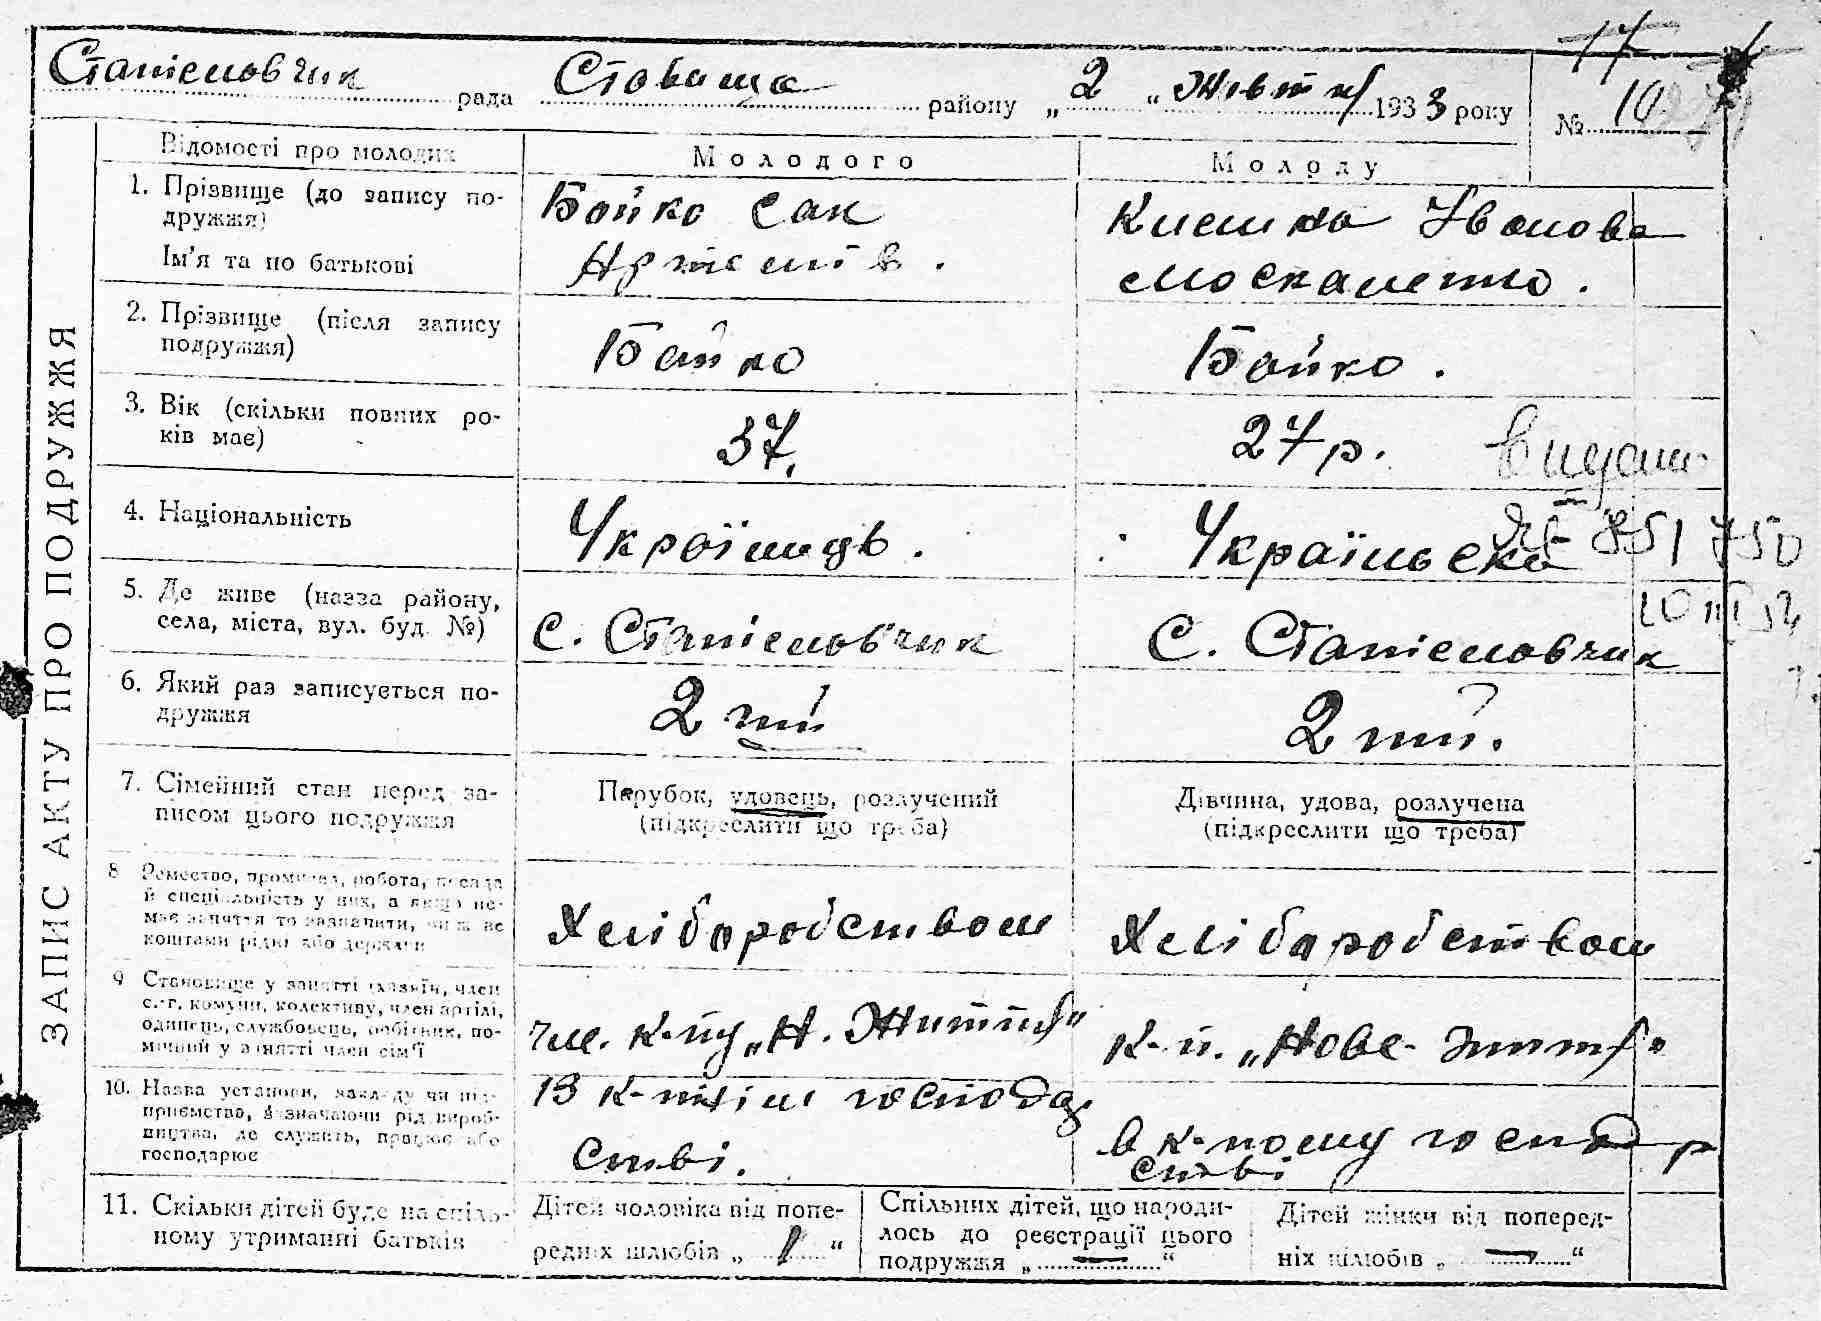 Станіславчик рада Ставища району „2“ Жовтня 1933 року
№ 10
17
ЗАПИС АКТУ ПРО ПОДРУЖЖЯ
Відомості про молодих
Молодого
Молоду
1. Прізвище (до запису по-
дружжя)
Ім'я та по батькові
Бойко Сак
Артемів.
Килина Іванова
Москаленко.
2. Прізвище (після запису
подружжя)
Бойко
Бойко.
3. Вік (скільки повних ро-
ків має)
37.
27 р.
видано
4. Національність
Українць.
Україньска
851750
5. Де живе (назва району,
села, міста, вул. буд. №)
с. Станіславчик
С. Станіславчик
10 III 52
6. Який раз записується по-
дружжя
2 гий
2 гий.
7. Сімейний стан перед за-
писом цього подружжя
Парубок, удовець, розлучений
(підкреслити що треба)
Дівчина, удова, розлучена
(підкреслити що треба)
8 Ремество, промисел, робота, посада
й спеціяльність у них, а якщо не-
має заняття то зазначити, чи ж ве
коштами рідні або держави
Хліборобством
Хліборобством
9 Становище у занятті (хазяїн, член
с.-г. комуни, колективу, член артілі,
одинець, службовець, робітник, по-
мічний у занятті член сім'ї
чл. к-пу „Н. Життя“
К-п. „Нове-життя“
10. Назва установи, закладу чи під-
приємства, зазначаючи рід вироб-
ництва, де служить, працює або
господарює
В к-тнім господар
стві.
в к-ному господар
стві
11. Скільки дітей буде на спіль-
ному утриманні батьків
Дітей чоловіка від попе-
редніх шлюбів „ 1 “
Спільних дітей, що народи-
лось до реєстрації цього
подружжя „ — “
Дітей жінки від поперед-
ніх шлюбів „ — “